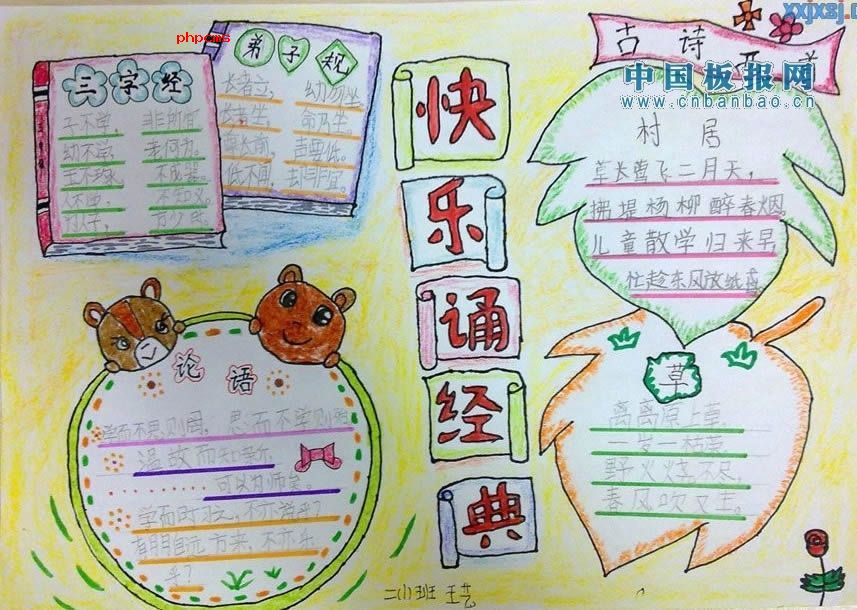 phpcms
xxjxsj.
中国板报网
www.cnbanbao.cn
快
乐
诵
经
典
三字经
子不学，
幼不学，老何为。
不知义。
弟子规
长者立，幼勿坐。
长者坐，命乃坐。
尊长前，声要低。
低不闻，
论语
学而不思则罔，思而不学则殆。
温故而知新
可以为师矣。
学而时习之，不亦说乎？
有朋自远方来，不亦乐
乎？
古诗
村居
草长莺飞二月天，
拂堤杨柳醉春烟。
儿童散学归来早，
忙趁东风放纸鸢
草
离离原上草，
一岁一枯荣。
野火烧不尽，
春风吹又生。
二（1）班